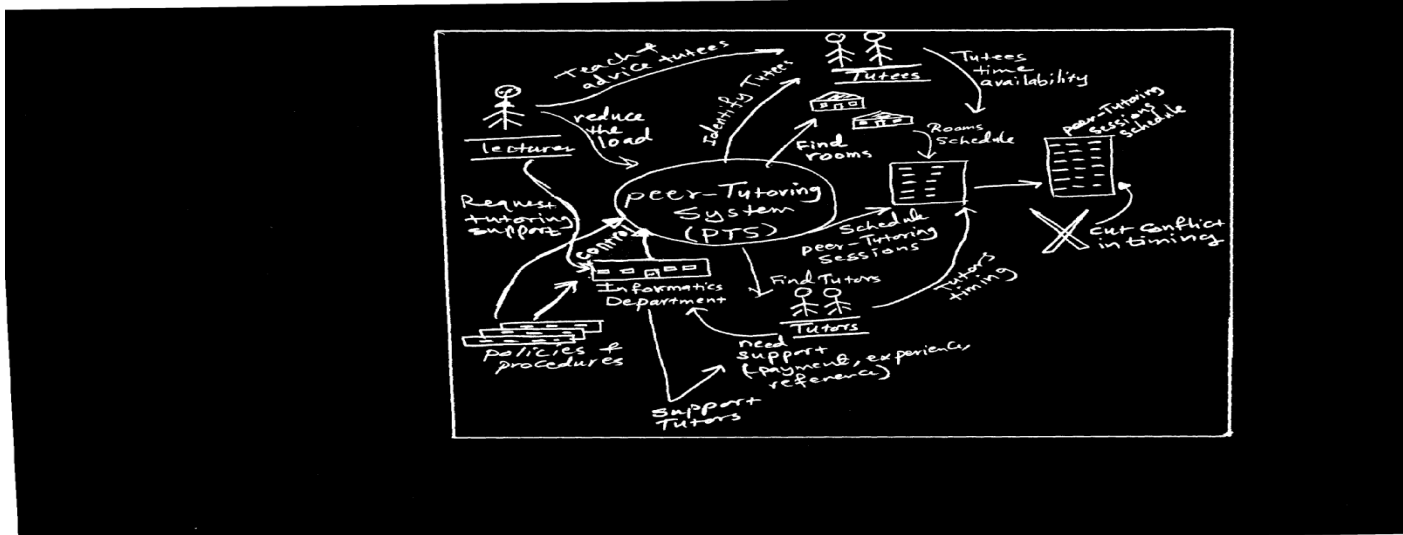 Teach &
advice tutees
Tutees
Tutees
time
availability
lecturer
reduce
the
load
Identify Tutees
Find
rooms
Rooms
Schedule
peer-Tutoring
sessions
schedule
Request
tutoring
support
peer-Tutoring
System
(PTS)
control
Schedule
peer-Tutoring
Sessions
cut conflict
in timing
Informatics
Department
Find Tutors
Tutors
Tutors
timing
policies &
procedures
need
support
(payment, experience,
reference)
Support
Tutors